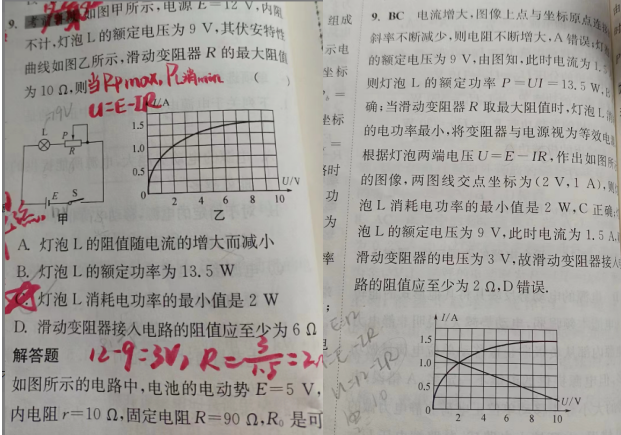 9.
如图甲所示,电源 E=12 V,内阻
不计,灯泡 L 的额定电压为 9 V,其伏安特性
曲线如图乙所示,滑动变阻器 R 的最大阻值
为 10 Ω,则 ( )
当Rpmax,PL消min
U=E-IR
I/A
1.5
1.0
0.5
0
2 4 6 8 10
U/V
乙
L
P
R
E
S
甲
A. 灯泡 L 的阻值随电流的增大而减小
B. 灯泡 L 的额定功率为 13.5 W
C. 灯泡 L 消耗电功率的最小值是 2 W
D. 滑动变阻器接入电路的阻值应至少为 6 Ω
12-9=3V, R=3/1.5=2
解答题
如图所示的电路中,电池的电动势 E=5 V,
内电阻 r=10 Ω,固定电阻 R=90 Ω,R₀ 是可
组成
示电
坐标
坐标
时
功
为
率
9. BC 电流增大,图像上点与坐标原点连
斜率不断减少,则电阻不断增大,A 错误;灯
的额定电压为 9 V,由图知,此时电流为 1.
则灯泡 L 的额定功率 P=UI=13.5 W,
确;当滑动变阻器 R 取最大阻值时,灯泡 L
的电功率最小,将变阻器与电源视为等效电
根据灯泡两端电压 U=E-IR,作出如图所
的图像,两图线交点坐标为(2 V,1 A),则
泡 L 消耗电功率的最小值是 2 W,C 正确;
泡 L 的额定电压为 9 V,此时电流为 1.5 A,
滑动变阻器的电压为 3 V,故滑动变阻器接入
路的阻值应至少为 2 Ω,D 错误.
I/A
1.5
1.0
0.5
0
2 4 6 8 10
U/V
E=12
U=12-IR